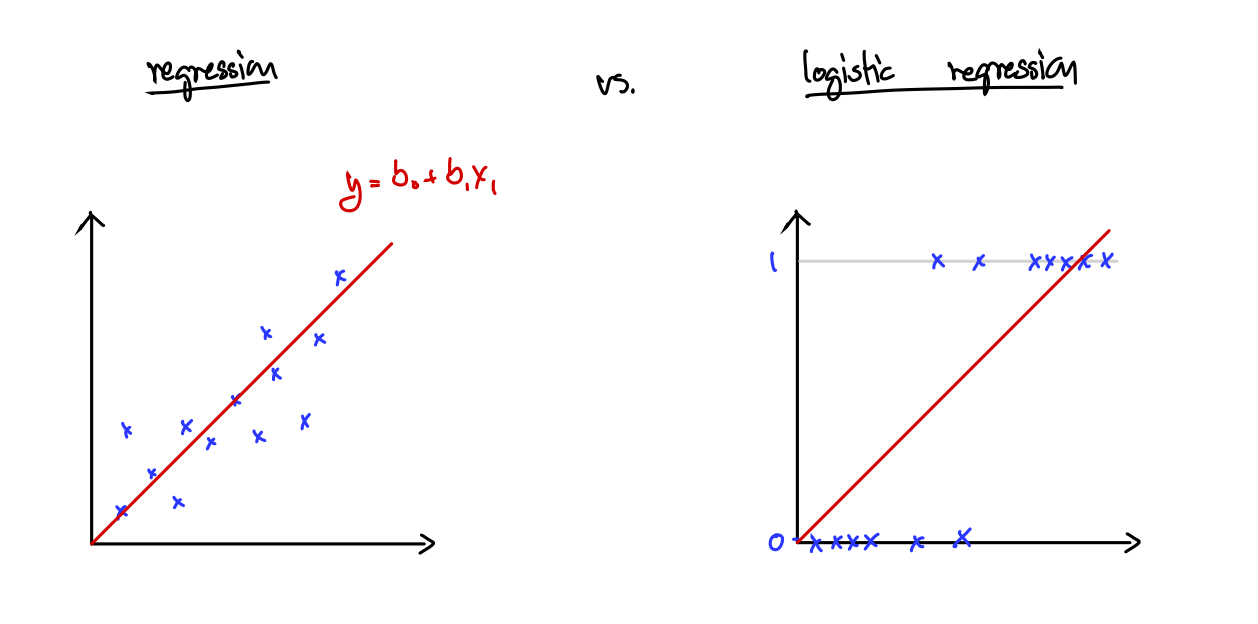 regression vs. logistic regression
y = b₀ + b₁x₁
1
0